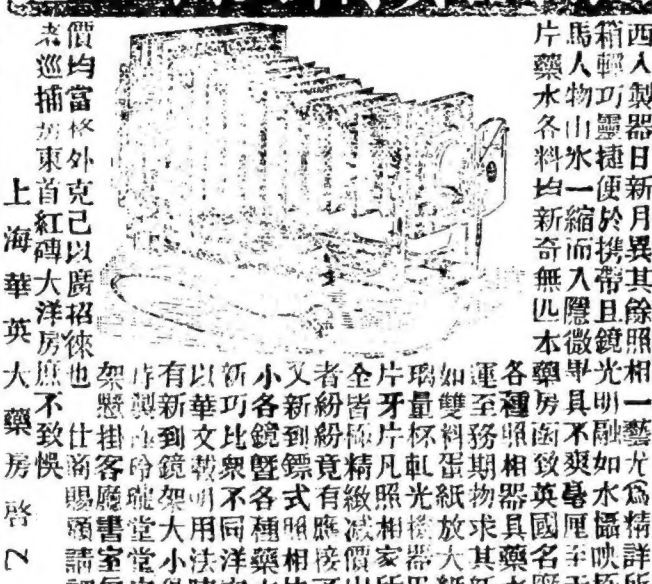 西人製器日新月異其餘照相一藝尤為精詳所
箱輕巧靈捷便於携帶且鏡光明融如水攝映
馬人物山水一縮而入隱微畢具不爽毫厘至
片藥水各料均新奇無匹本藥房函致英國名
各種照相器具藥
運至務期物求其新
如雙料蛋紙放大紙
璃量杯軋光機器
片牙片凡照相家所
全皆極精緻減價
者紛紛竟有應接
又新到鏢式照相
小各鏡暨各種藥
新巧比衆不同洋
以華文載明用法
有新到鏡架大小
製玲瓏堂堂
架懸掛客廳書室
價均當格外克己以廣招徠也 仕商賜顧請
巡捕房東首紅磚大洋房庶不致悞
上海華英大藥房啓